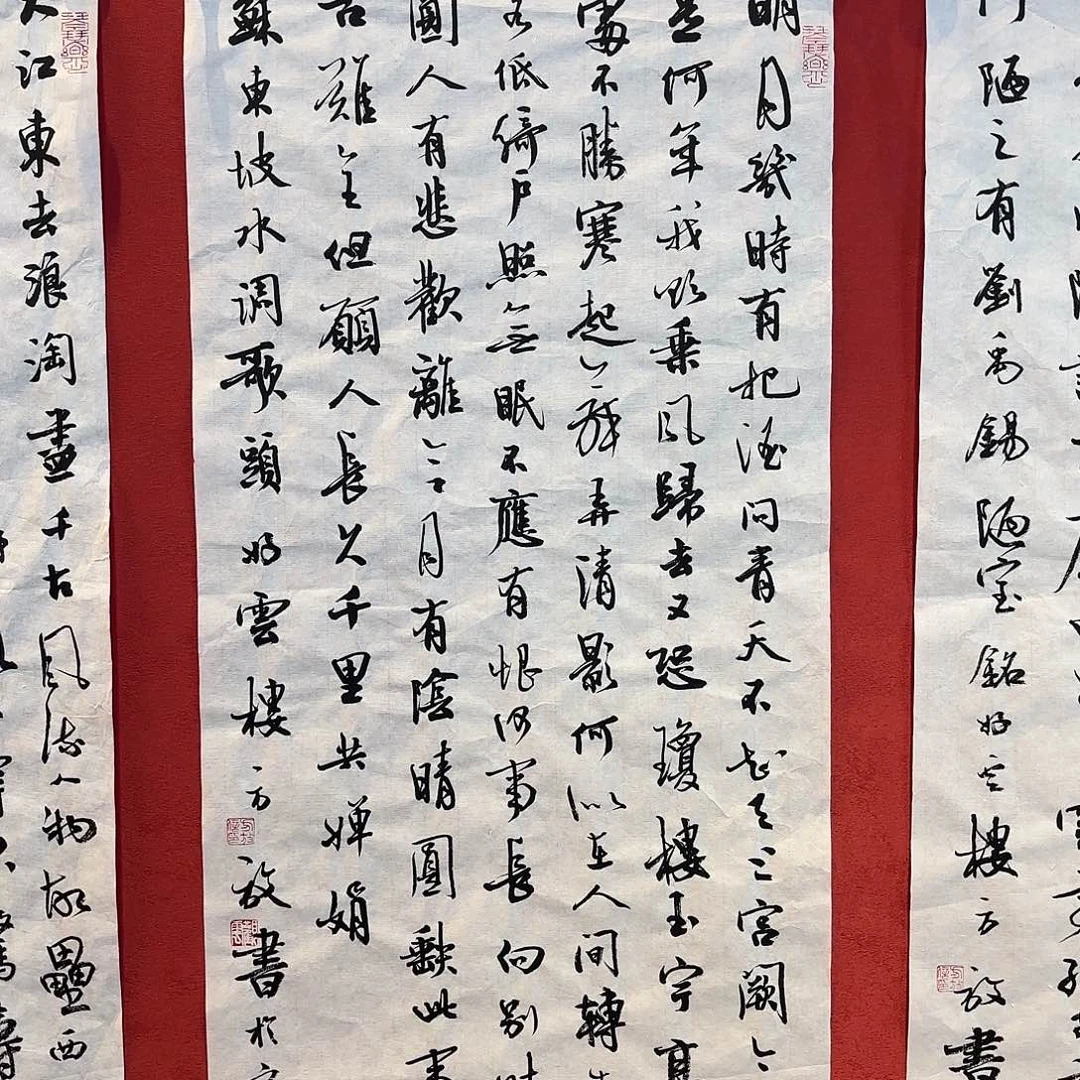 何陋之有劉禹錫陋室銘好雲樓方放書
明月幾時有把酒問青天不知天上宮闕今
是何年我欲乘風歸去又恐瓊樓玉宇高
處不勝寒起舞弄清影何似在人間轉朱
低綺戶照無眠不應有恨何事長向別時
圓人有悲歡離合月有陰晴圓缺此事
古難全但願人長久千里共嬋娟
蘇東坡水調歌頭好雲樓方放書於
大江東去浪淘盡千古風流人物故壘西